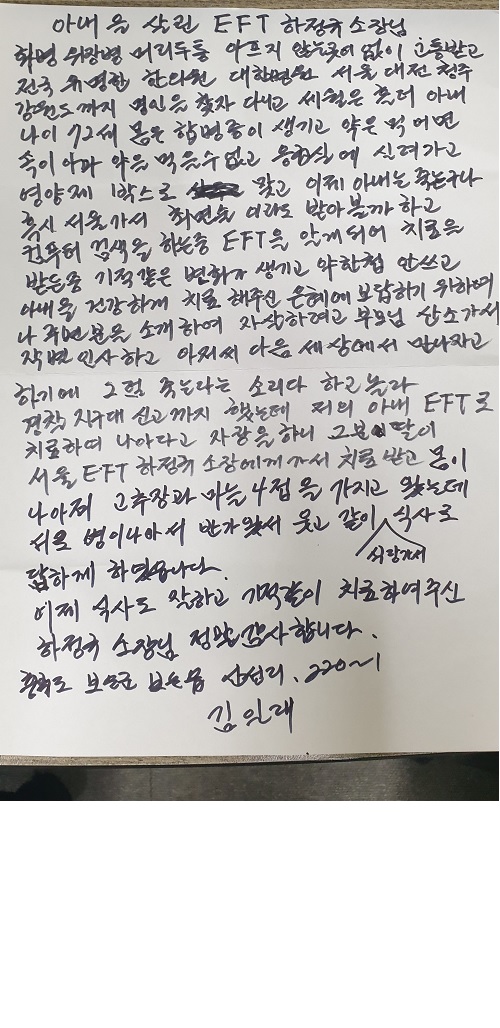 아내을 살린 EFT 하정규 소장님
화병 위장병 머리두통 아프지 않는곳이 없이 고통받고
전국 유명한 한의원 대학병원 서울 대전 청주
강원도까지 명인을 찾자 다니고 세월은 흘러 아내
나이 72세 몸은 합병증이 생기고 약은 먹어면
속이아파 약을 먹을수없고 응급실에 실려가고
영양제 1박스로 맞고 이제 아내는 죽는구나
혹시 서울가서 최면술 이라도 받아볼까 하고
컴푸터 검색을 하는중 EFT을 알게되어 치료을
받든중 기적같은 변화가 생기고 약한첩 안쓰고
아내을 건강하게 치료 해주신 은혜에 보답하기 위하여
나 주변분을 소개하여 자살하려고 부모님 산소가서
작별인사하고 아저씨 다음 세상에서 만나자고
하기에 그럼 죽는다는 소리다 하고 놀라
경찰 지구대 신고까지 했는데 저의 아내 EFT로
치료하여 나아다고 자랑을하니 그분 딸이
서울 EFT 하정규 소장에게 가서 치료받고 몸이
나아저 고추장과 마늘 4접을 가지고 왔는데
서로 병이나아서 반가워서 웃고 같이 식당가서 식사로
답하게 하였습니다.
이제 식사도 잘하고 기적같이 치료하여주신
하정규 소장님 정말 감사합니다.
보은군 보은읍 산성리. 220~1
김인래